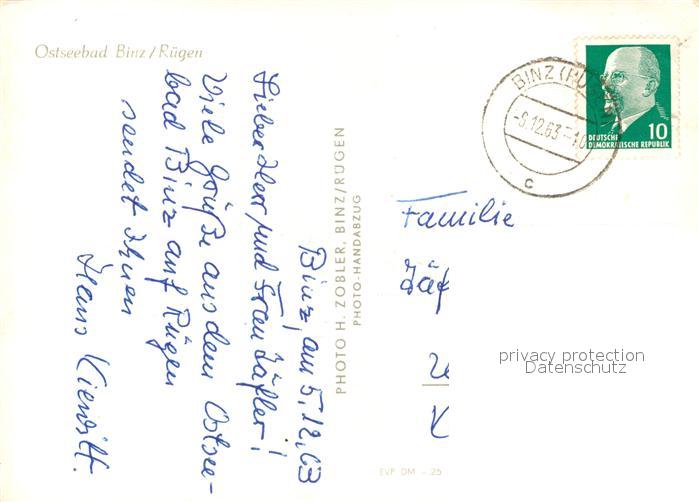 Ostseebad Binz / Rügen
BINZ (RÜGEN)
-9.12.63-10
c
10
DEUTSCHE
DEMOKRATISCHE REPUBLIK
Binz, am 5.12.63
Lieber Herr, und Frau Zäfler!
Viele Grüße aus dem Ostsee-
bad Binz auf Rügen
sendet Ihnen
Hans
PHOTO H. ZOBLER, BINZ/RÜGEN
PHOTO-HANDABZUG
Familie
Zäf
K
privacy protection
Datenschutz
EVP DM -.25